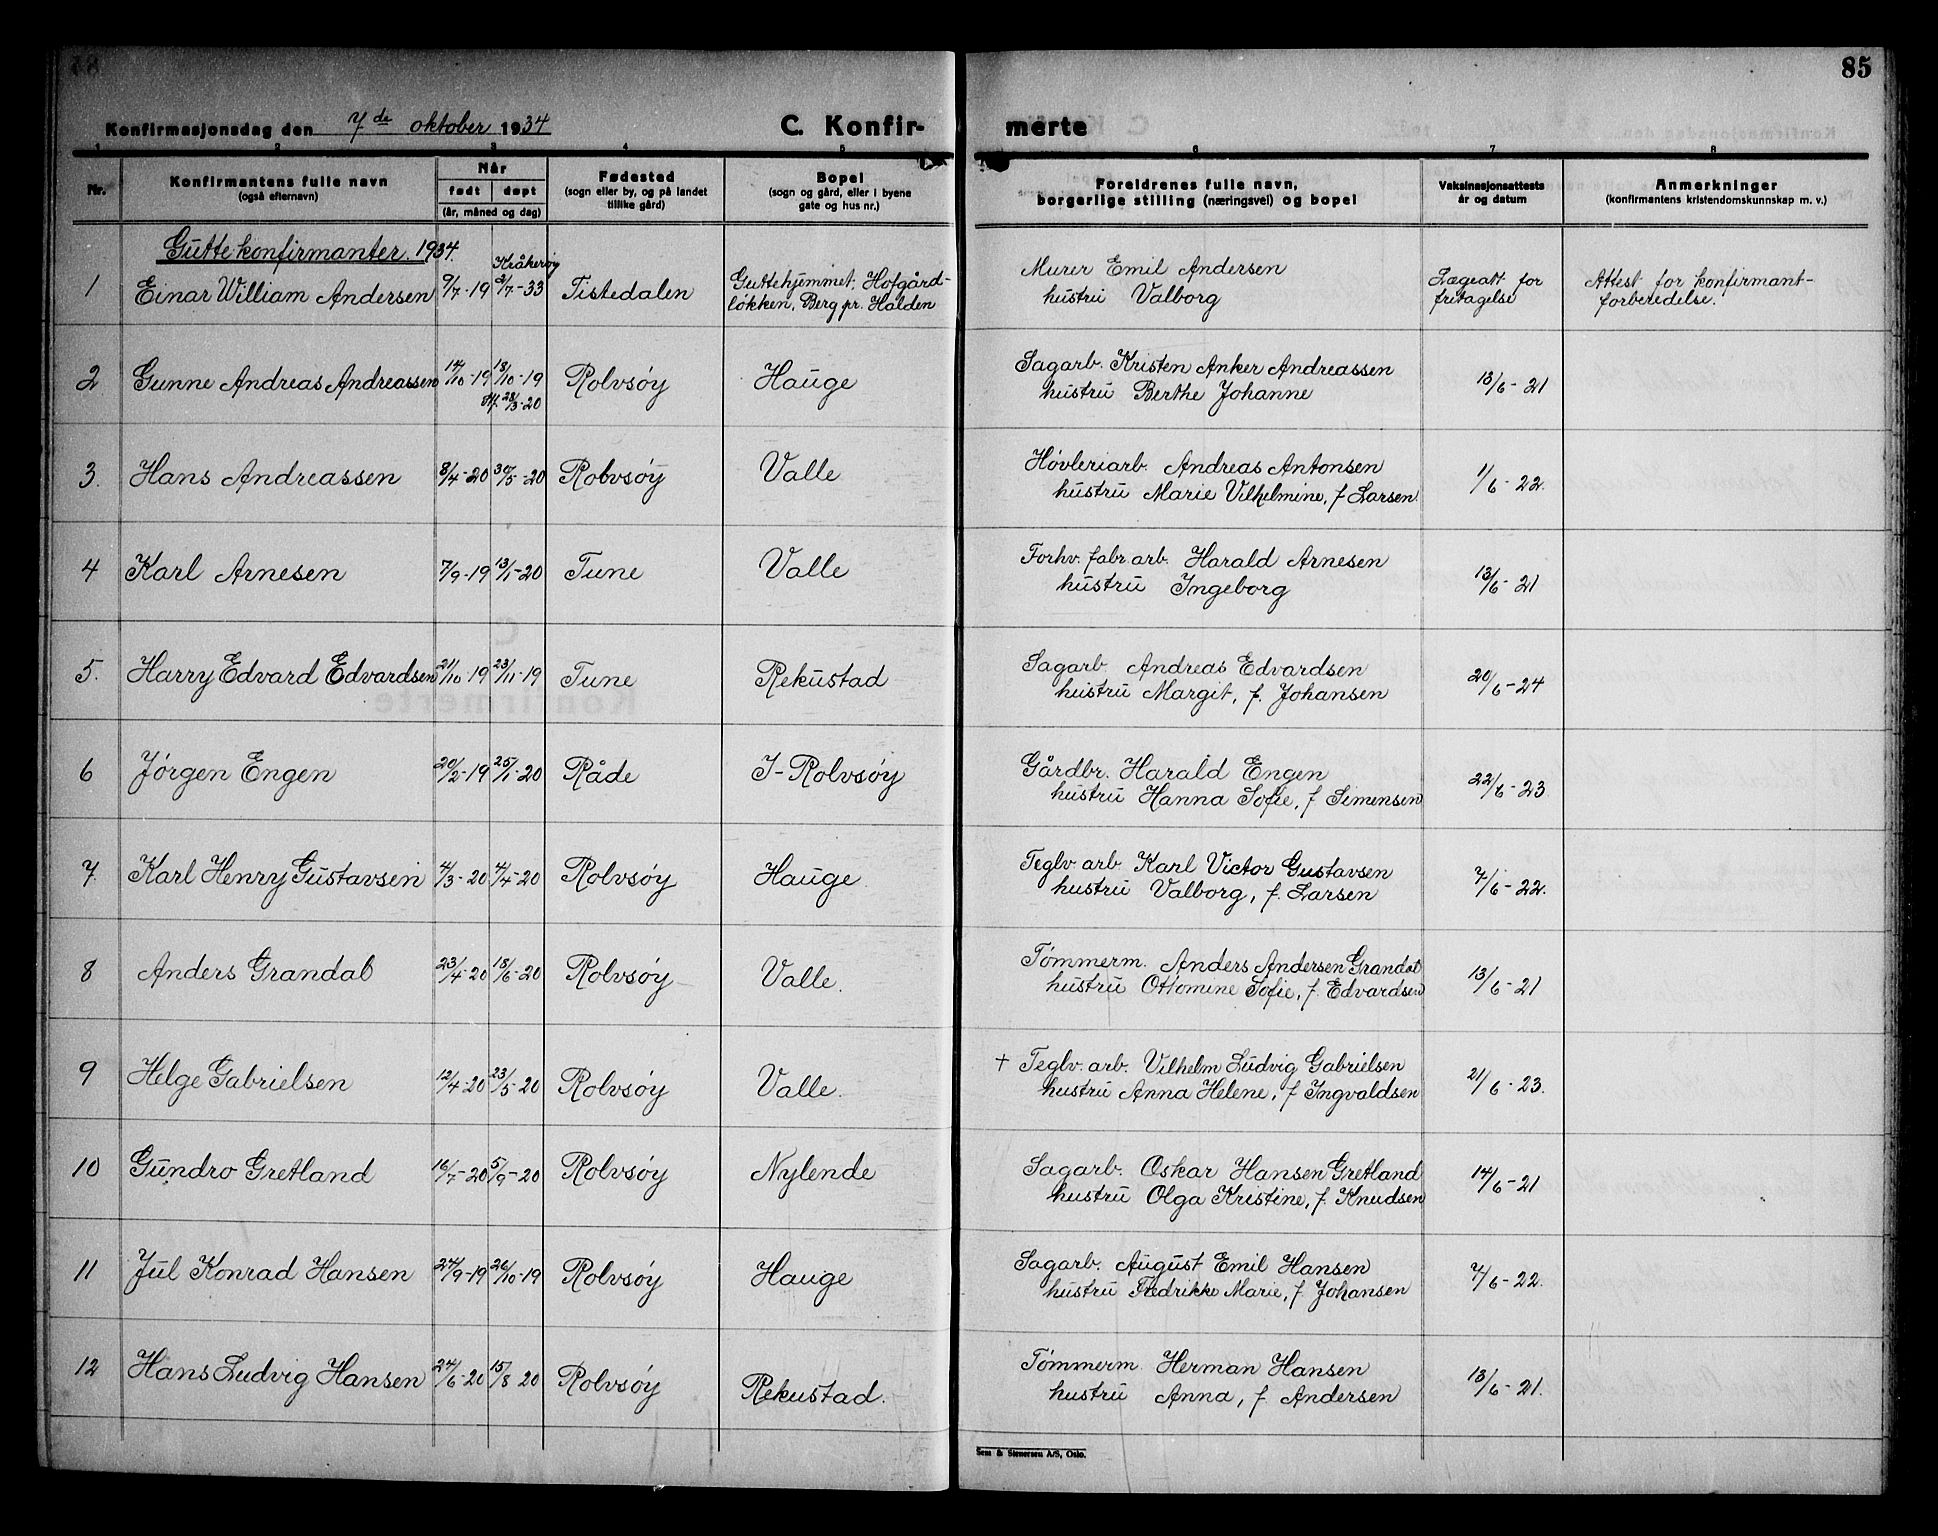 85
Konfirmasjonsdag den 7de oktober 1934
C. Konfir-
merte
1 2 3 4 5 6 7 8
Nr.
Konfirmantens fulle navn
(også efternavn)
Når
født døpt
(år, måned og dag)
Fødested
(sogn eller by, og på landet
tillike gård)
Bopel
(sogn og gård, eller i byene
gate og hus nr.)
Foreldrenes fulle navn,
borgerlige stilling (næringsvei) og bopel
Vaksinasjonsattests
år og datum
Anmerkninger
(konfirmantens kristendomskunnskap m. v.)
Guttekonfirmanter. 1934.
Kråkerøy
1 Einar William Andersen 9/7-19 2/7-33 Tistedalen Guttehjemmet, Hofgård-
løkken, Berg pr. Halden
Murer Emil Andersen
hustru Valborg
Lægeatt for
fritagelse
Attest for konfirmant-
forberedelse.
2 Gunne Andreas Andreassen 14/10-19 18/10-19 Rolvsøy Hauge
28/3-20
Sagarb. Kristen Anker Andreassen
hustru Berthe Johanne
13/6-21
3. Hans Andreassen 8/4-20 30/5-20 Rolvsøy Valle
Høvleriarb. Andreas Antonsen
hustru Marie Vilhelmine, f Larsen
1/6-22.
4 Karl Arnesen 7/9-19 13/1-20 Tune Valle
Forhv. fabr. arb. Harald Arnesen
hustru Ingeborg
13/6-21
5. Harry Edvard Edvardsen 21/10-19 23/11-19 Tune Rekustad
Sagarb. Andreas Edvardsen
hustru Margit, f. Johansen
20/6-24
6 Jørgen Engen 20/2-19 25/1-20 Råde I-Rolvsøy
Gårdbr. Harald Engen
hustru Hanna Sofie, f Simensen
22/6-23
7. Karl Henry Gustavsen 4/3-20 4/4-20 Rolvsøy Hauge.
Teglv. arb. Karl Victor Gustavsen
hustru Valborg, f. Larsen
7/6-22.
8 Anders Grandal 23/4-20 18/6-20 Rolvsøy Valle.
Tømmerm. Anders Andersen Grandal
hustru Ottomine Sofie, f. Edvardsen
13/6-21
9 Helge Gabrielsen 12/4-20 23/5-20 Rolvsøy Valle.
+ Teglv. arb. Vilhelm Ludvig Gabrielsen
hustru Anna Helene, f Ingvaldsen
21/6-23.
10 Gundro Gretland 16/7-20 5/9-20 Rolvsøy Nylende
Sagarb. Oskar Hansen Gretland
hustru Olga Kristine, f. Knudsen
14/6-21
11 Jul Konrad Hansen 24/9-19 26/10-19 Rolvsøy Hauge
Sagarb. August Emil Hansen
hustru Fredrikke Marie, f. Johansen
7/6-22.
12 Hans Ludvig Hansen 24/6-20 15/8 20 Rolvsøy Rekustad.
Tømmerm. Herman Hansen
hustru Anna, f. Andersen
13/6-21.
Sem & Stenersen A/S, Oslo.